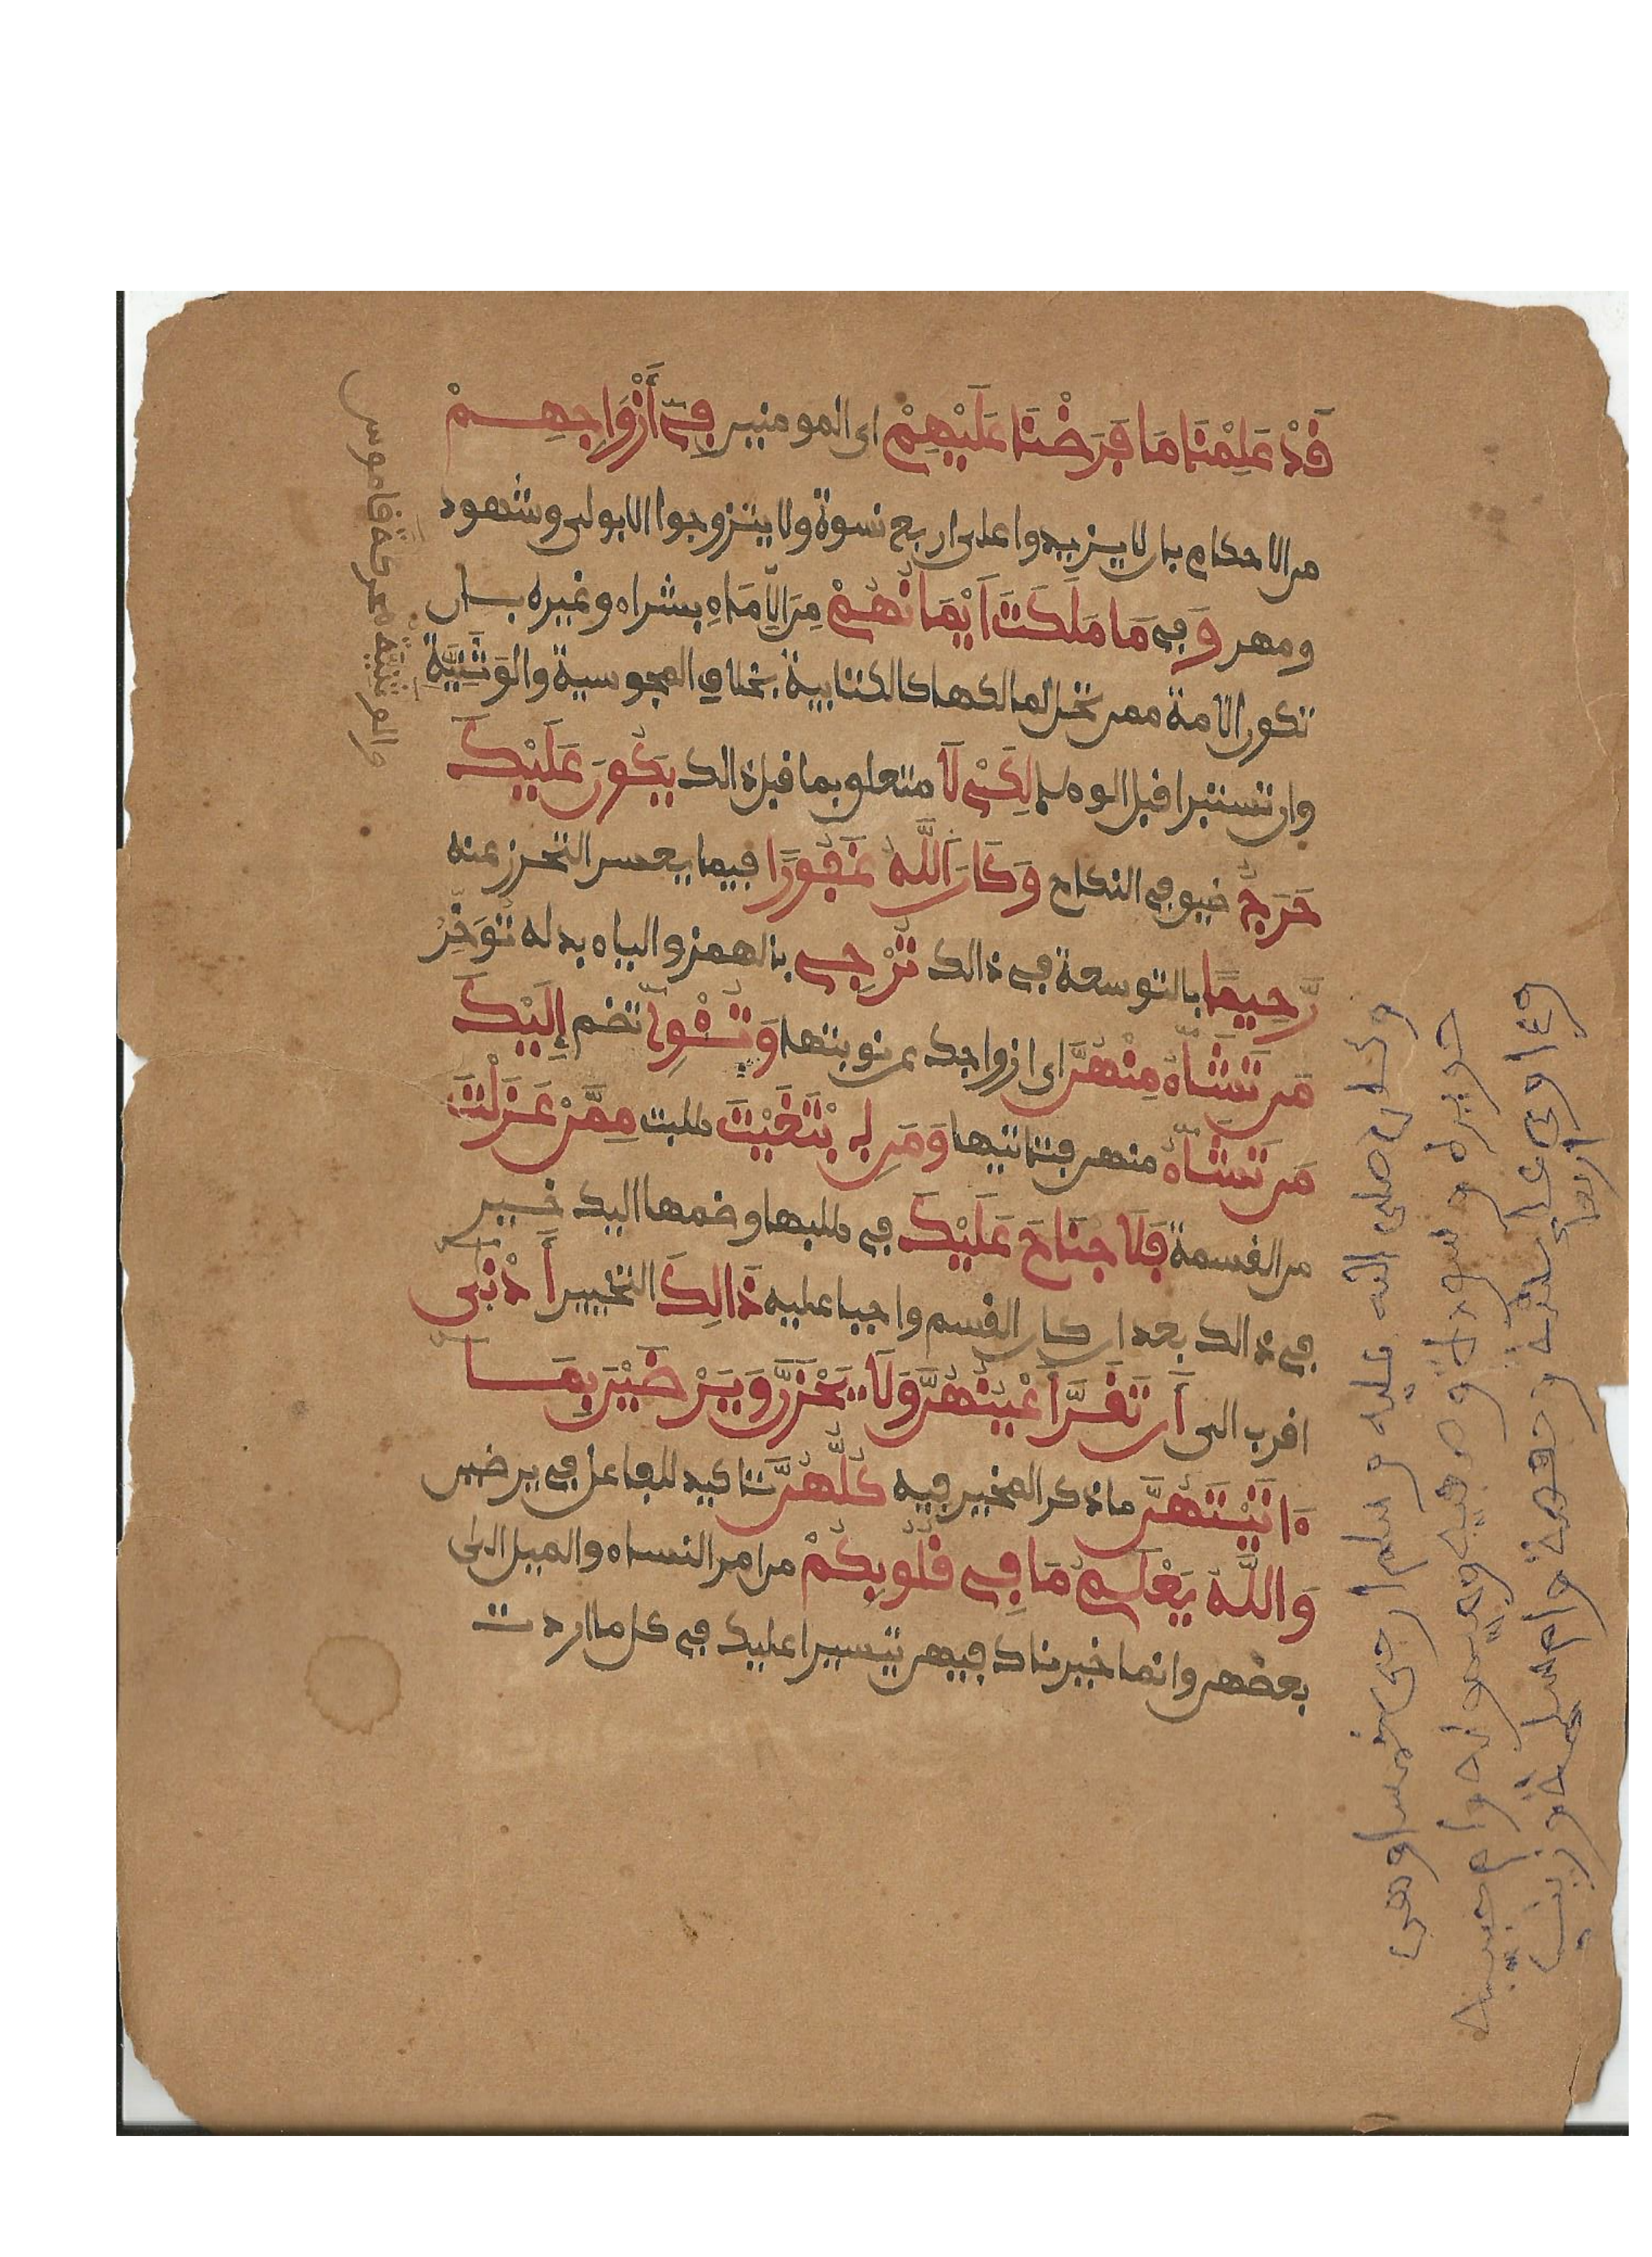 قَدْ عَلِمْنَا مَا فَرَضْنَا عَلَيْهِمْ اى المومنين فِےٓ أَزْوَاجِهِمْ
من الاحكام بان لا يزيدوا على اربع نسوة ولا يتزوجوا الا بولى وشهود
ومهر وَ فى مَا مَلَكَتَ اَيْمَانُهُمْ مِنَ الِامَاءِ بشراء وغيره بان
تكون الامة ممن تحل لمالكها كالكتابية بخلاف المجوسية والوَثَنِيَّةِ
وان تستبرا قبل الوطء لِكَيْ لَا متعلق بما قبل ذالك يَكُونَ عَلَيْكَ
حَرَجٌ ضيق فى النكاح وَكَانَ اَللَّهُ غَفُورًا فيما يعسر التحرز عنه
رَّحِيمًا بالتوسعة فى ذالك تُرْجِے بالهمز والياء بدله تُوَخِّرُ
مَن تَشَآءُ مِنْهُنَّ اى ازواجك عن نوبتها وَتُـْٔوِےٓ تضم إِلَيْكَ
مَن تَشَآءُ منهن فتاتيها وَمَنِ اِبْتَغَيْتَ طلبت مِمَّنْ عَزَلْتَ
من القسمة فَلَا جُنَاحَ عَلَيْكَ فى طلبها وضمها اليك خير
فى ذالك بعد ان كان القسم واجبا عليه ذَالِكَ التخيير أَدْنَى
اقرب الى أَن تَقَرَّ أَعْيُنُهُنَّ وَلَا يَحْزَنَّ وَيَرْضَيْنَ بِمَا
ءَاتَيْتَهُنَّ ما ذكر المخير فيه كُلُّهُنَّ تاكيد للفاعل فى يرضين
وَاللَّهُ يَعْلَمُ مَا فِے قُلُوبِكُمْ من امر النساء والميل الى
بعضهن وانما خيرناك فيهن تيسيرا عليك فى كل ما اردت
قاموس
وكان صلى الله عليه و سلم ارجى خمسا وهى
جويرة و سودة و صفية و ميمونة و ام حبيبة
و ءاوى عايشة و حفصة و ام سلمة و زينب
اربعا